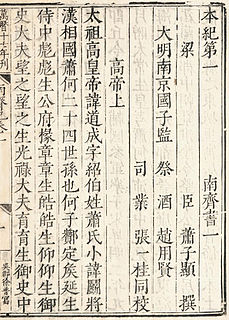 本紀第一 南齊書一
梁 臣 蕭子顯 撰
大明南京國子監 祭 酒 趙用賢
司 業 張一桂同校
高帝上
太祖高皇帝諱道成字紹伯姓蕭氏小諱鬬將
漢相國蕭何二十四世孫也何子酇定侯延生
侍中彪彪生公府掾章章生皓皓生仰仰生御
史大夫望之望之生光祿大夫育育生御史中